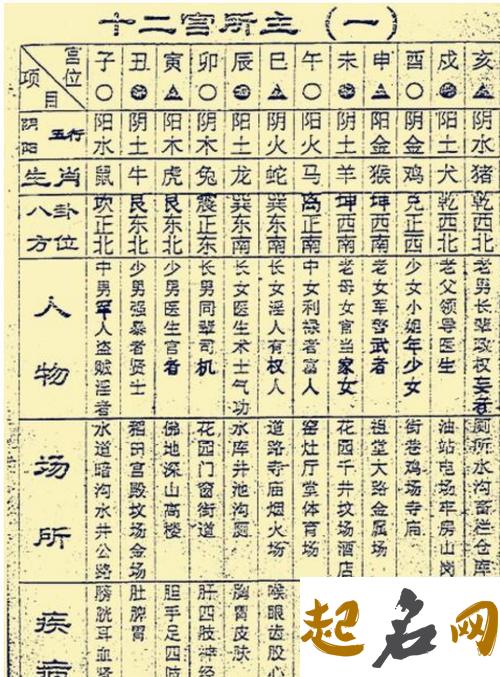 十二宫所主（一）
宫位 项目 子 丑 寅 卯 辰 巳 午 未 申 酉 戌 亥
阴阳五行 阳水 阴土 阳木 阴木 阳土 阴火 阳火 阴土 阳金 阴金 阳土 阴水
生肖 鼠 牛 虎 兔 龙 蛇 马 羊 猴 鸡 犬 猪
八卦方位 坎正北 艮东北 艮东北 震正东 巽东南 巽东南 离正南 坤西南 坤西南 兑正西 乾西北 乾西北
人物
中男军人盗贼淫者
少男强暴者贤士
少男医生宫者
长男同辈司机
长女医生术士气功
长女淫人有权人
中女利禄者富人
老母女官当家女
老女军警武者
少女小姐年少女
老父领导医生
老男长辈政权妄者
场所
水道暗沟水井公路
稻田宫殿坟场金场
佛地深山高楼
花园门窗街道
水库井池沟厕
道路寺庙烟火场
窑灶厅堂体育场
花园千井坟场酒店
祖堂大路金属场
街巷鸡场寺庙
油站电场牢房山岗
厕所水沟畜栏仓库
疾病
膀胱耳血肾
肚脾胃
胆手足四肢
肝四肢神经
胸胃皮肤
喉眼齿股心
起名网